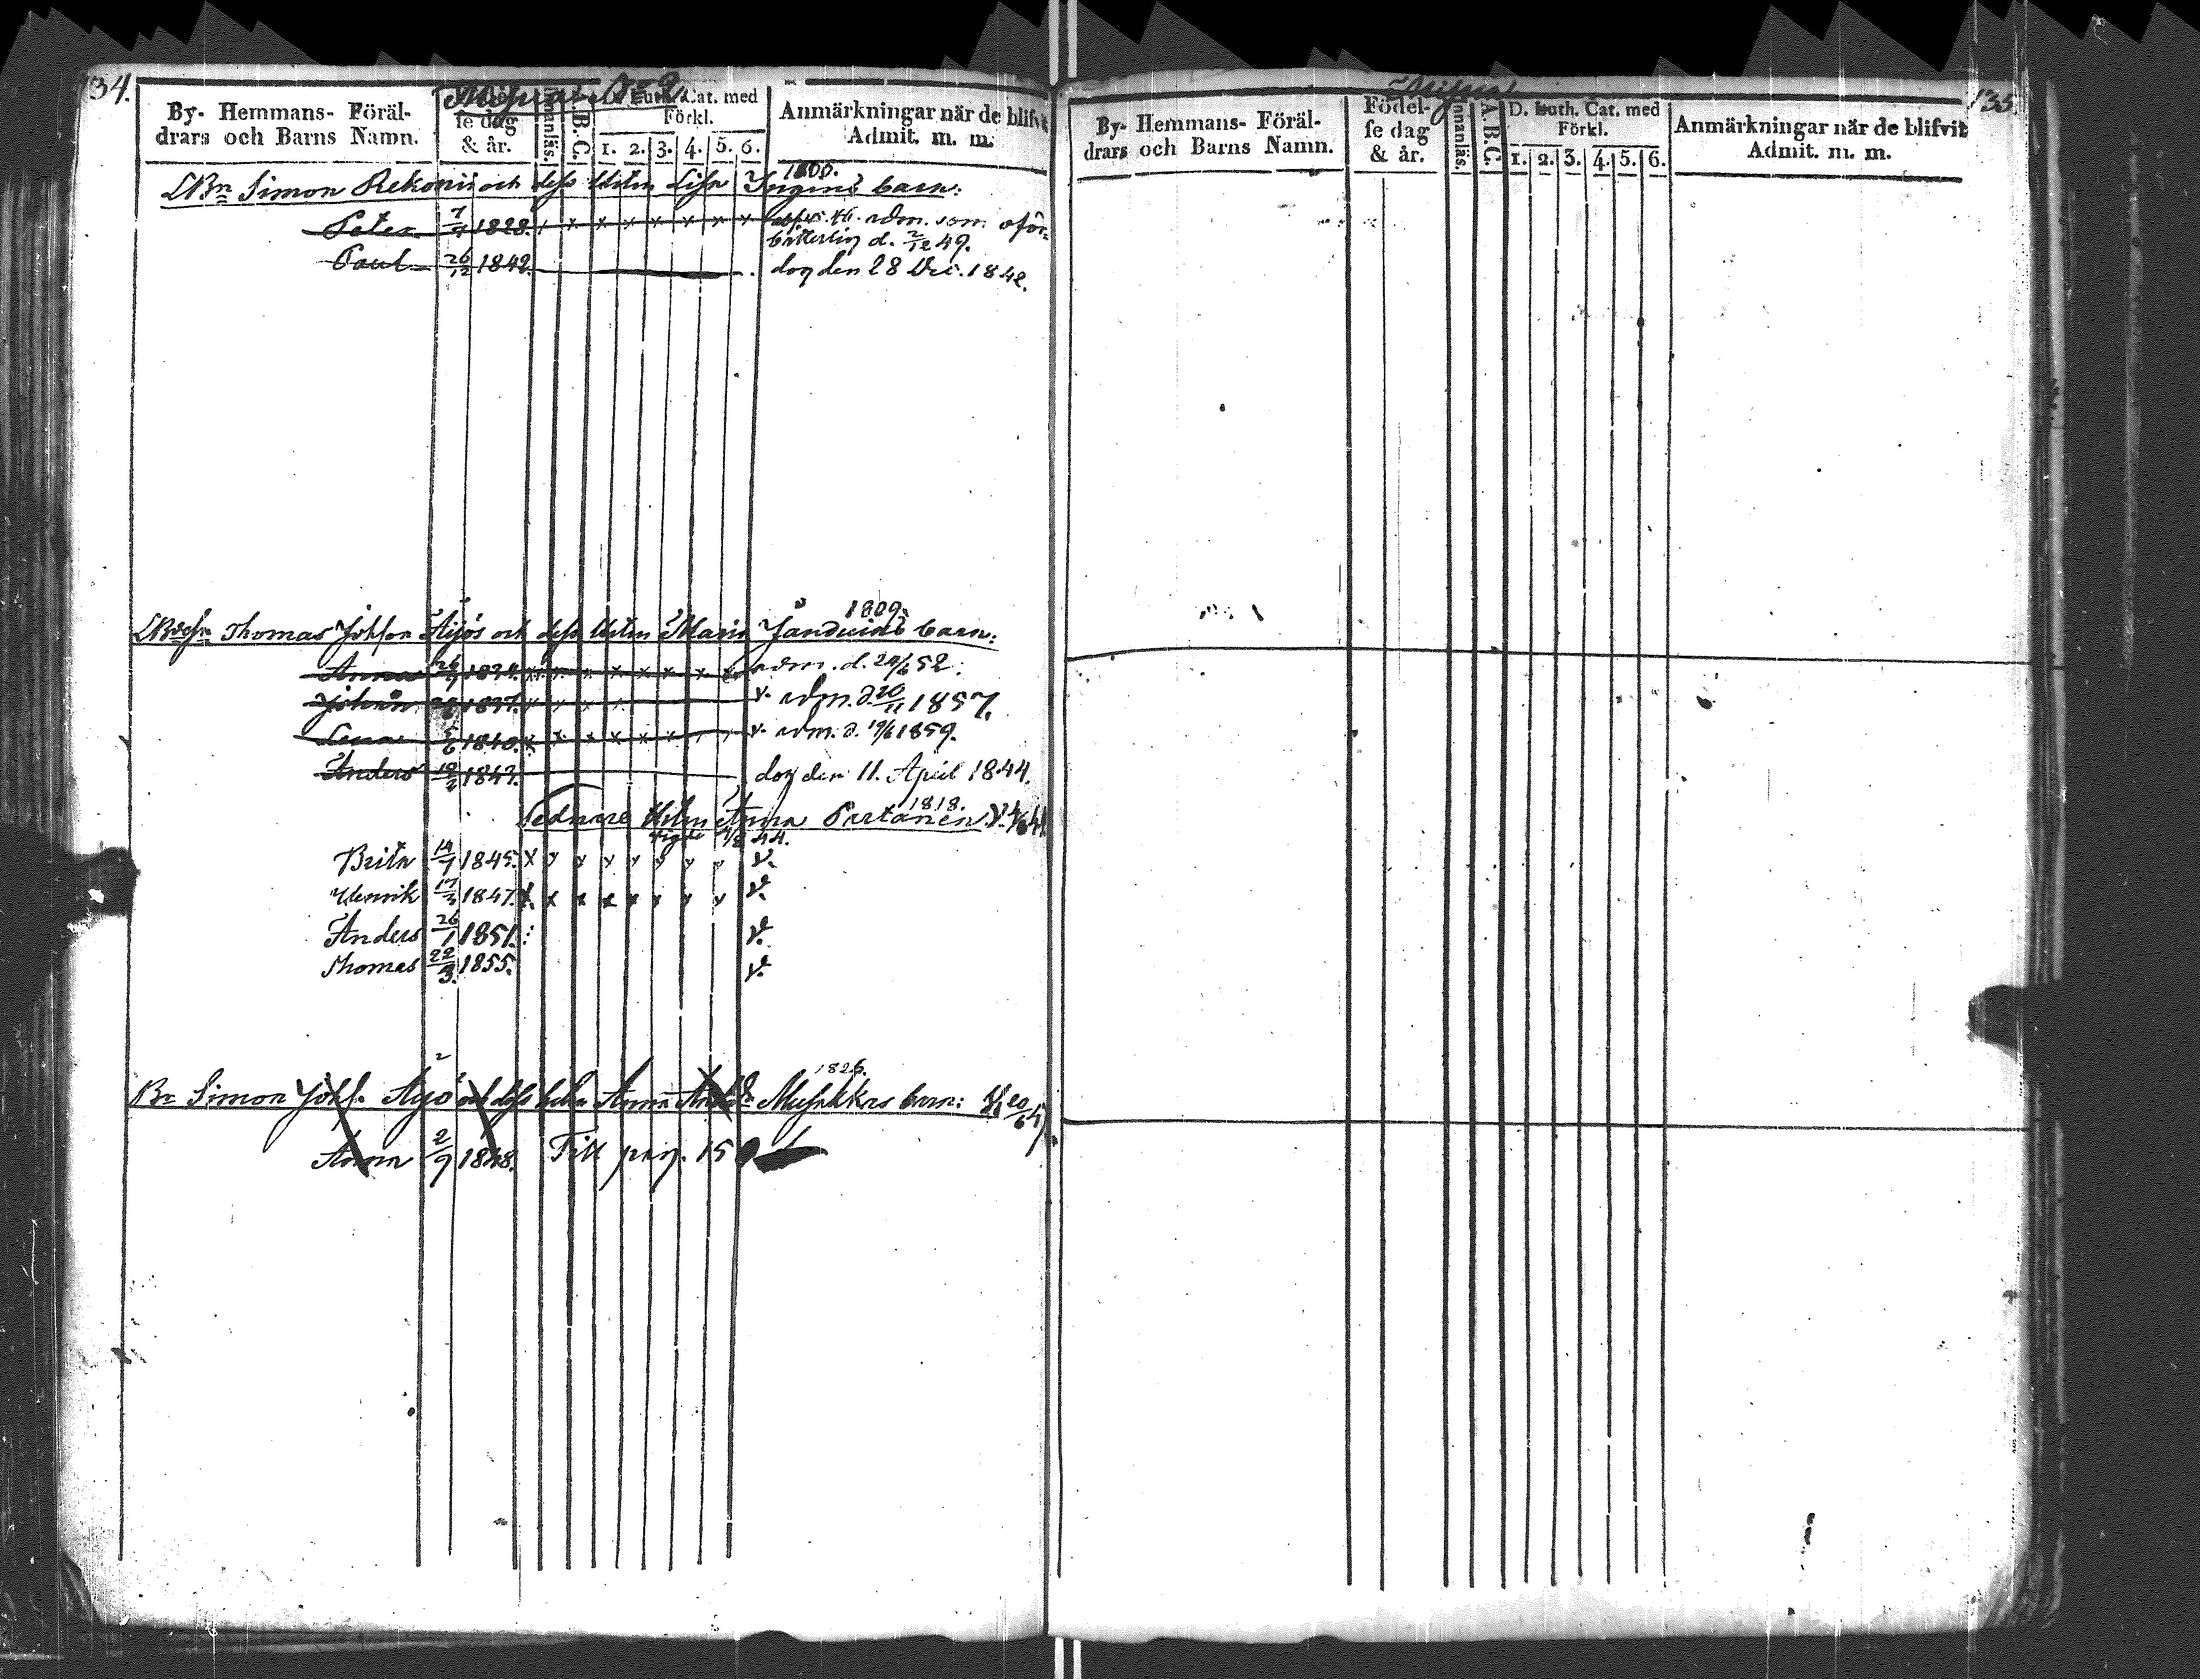 134.
By- Hemmans- Föräl-
drars och Barns Namn.
se dag
& år.
Innanläs.
A.B.C.
Luth. Cat. med
Förkl.
1. 2. 3. 4. 5. 6.
Anmärkningar när de blifvit
Admit. m. m.
1800.
LBn Simon Rekonis och dess Hstru Lisa Ingens barn:
Peter 1828. x x x x x x x adm. som oför-
bätterlig d. 2/12 49.
Paul 26/12 1842. dog den 28 Dec. 1842.
1809.
Thomas Johsson Äijös och dess Hstru Maria barn:
Anna 1834. x x x x x x adm. d. 24/6 52.
Johan 1837. adm. d. 20/11 1857.
Lena 1840. x x x x x adm. d. 19/6 1859.
Anders 1843. dog den 11. April 1844.
1818.
Sednare Hstru Anna Partanen
Brita 14/7 1845. x v.
Henrik 17/3 1847. x x x x x x x v.
Anders 26/1 1851. v.
Thomas 22/3. 1855. v.
1826.
Br Simon Johs. Äijö och dess hstru Anna Musakkas barn:
Anna 2/9 1848. Till pag. 15
135.
By- Hemmans- Föräl-
drars och Barns Namn.
Födel-
se dag
& år.
Innanläs.
A.B.C.
D. Luth. Cat. med
Förkl.
1. 2. 3. 4. 5. 6.
Anmärkningar när de blifvit
Admit. m. m.